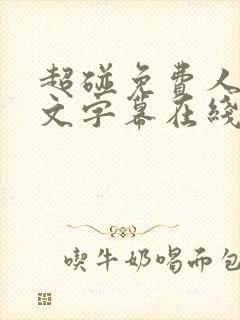 超碰免費人
文字幕在綫
喫牛奶喝而包